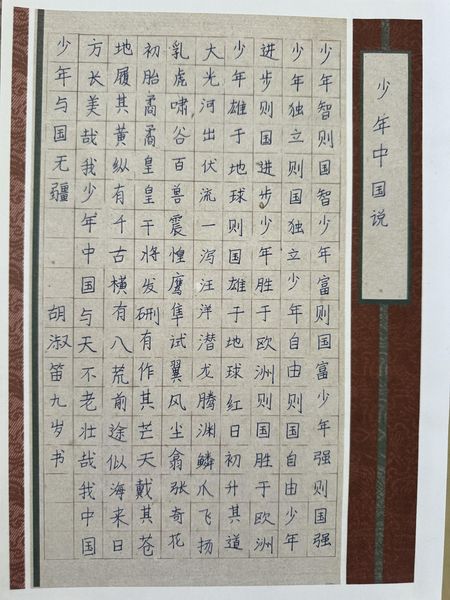 少年中国说
少年智则国智少年富则国富少年强则国强
少年独立则国独立少年自由则国自由少年
进步则国进步少年胜于欧洲则国胜于欧洲
少年雄于地球则国雄于地球红日初升其道
大光河出伏流一泻汪洋潜龙腾渊鳞爪飞扬
乳虎啸谷百兽震惶鹰隼试翼风尘翕张奇花
初胎矞矞皇皇干将发硎有作其芒天戴其苍
地履其黄纵有千古横有八荒前途似海来日
方长美哉我少年中国与天不老壮哉我中国
少年与国无疆 胡淑笛九岁书